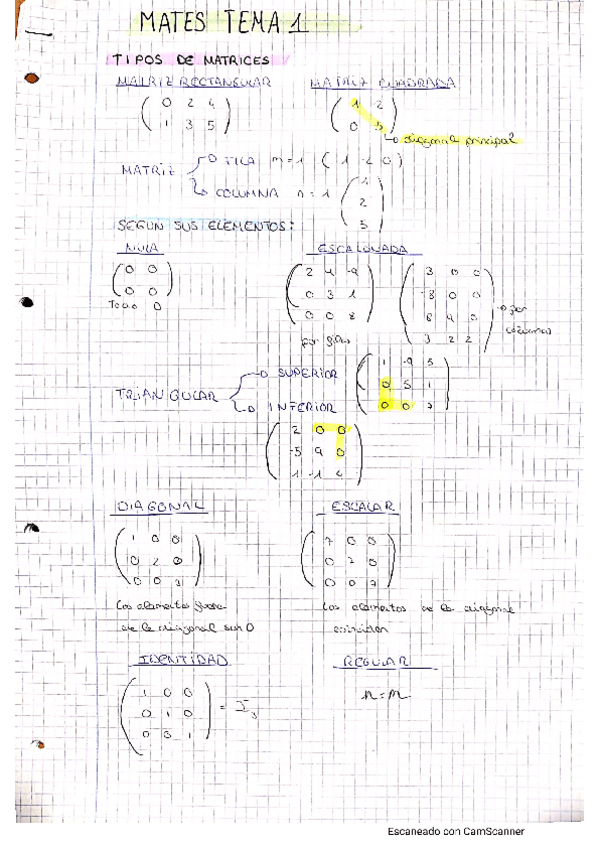 MATES TEMA 1
TIPOS DE MATRICES
MATRIZ RECTANGULAR
0 2 4
1 3 5
MATRIZ CUADRADA
1 2
0 3
diagonal principal
MATRIZ
FILA m=1 (1 -2 0)
COLUMNA n=1
2
5
SEGUN SUS ELEMENTOS:
NULA
0 0
0 0
Todo 0
ESCALONADA
2 4 -9
0 3 1
0 0 8
por filas
3 0 0
-3 0 0
6 4 0
3 2 2
por columnas
TRIANGULAR
SUPERIOR
1 -9 5
0 5 1
0 0 7
INFERIOR
2 0 0
-5 9 0
1 -1 4
DIAGONAL
1 0 0
0 2 0
0 0 3
Los elementos fuera
de la diagonal son 0
ESCALAR
7 0 0
0 7 0
0 0 7
Los elementos de la diagonal
coinciden
IDENTIDAD
1 0 0
0 1 0
0 0 1
= I3
REGULAR
n=m
Escaneado con CamScanner